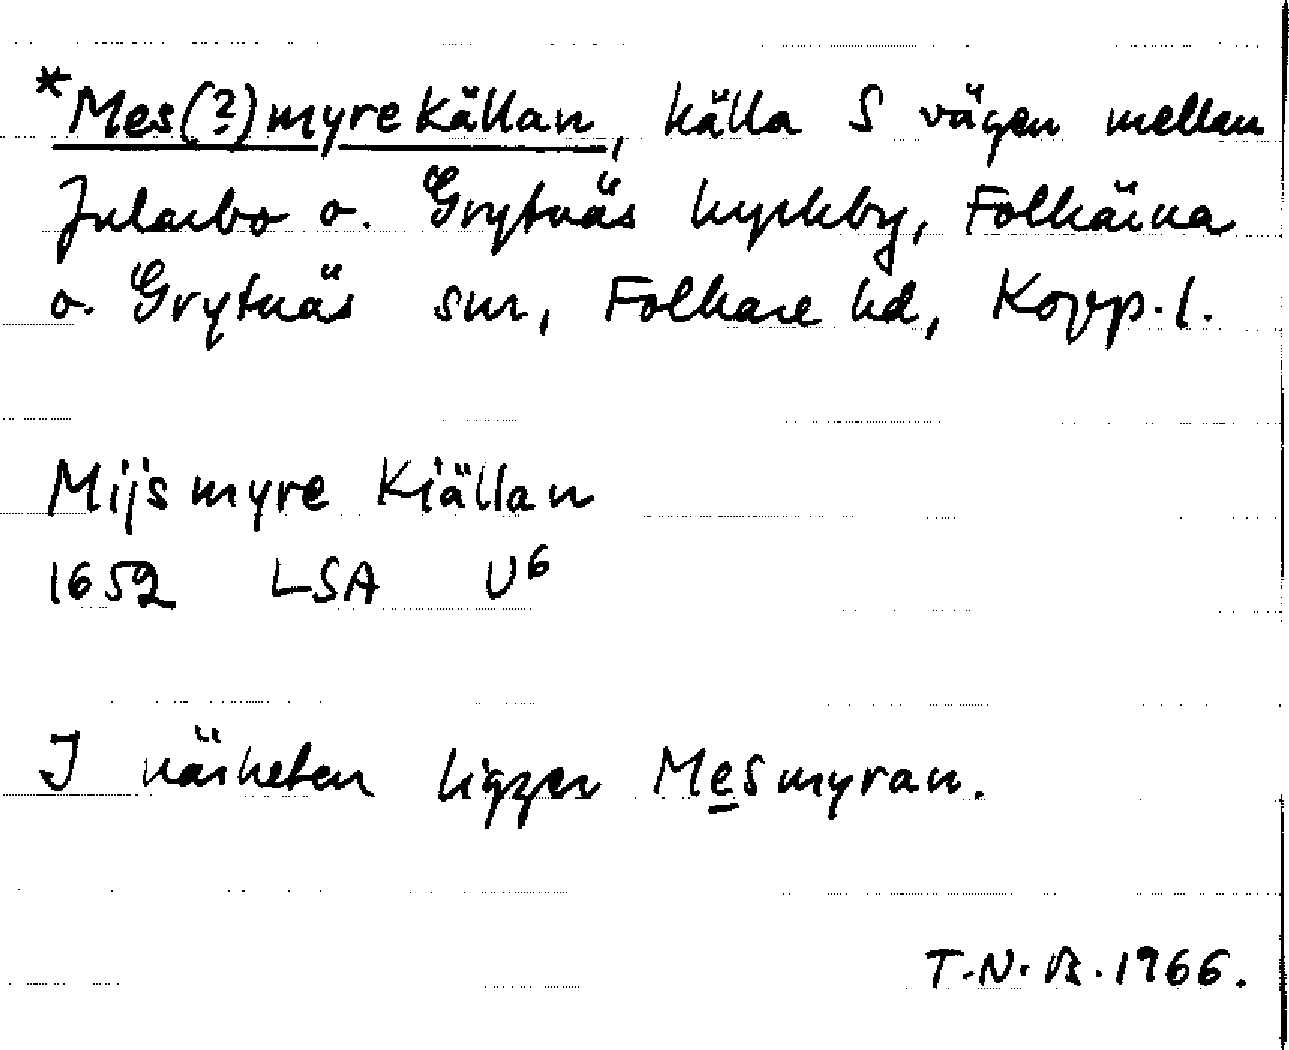 *Mes(?)myrekällan, källa S vägen mellan
Jularbo o. Grytnäs kyrkby, Folkärna
o. Grytnäs snr, Folkare hd, Kopp. l.
Mijs myre Kiällan
1652 LSA U6
I närheten ligger Mesmyran.
T.N.B. 1966.